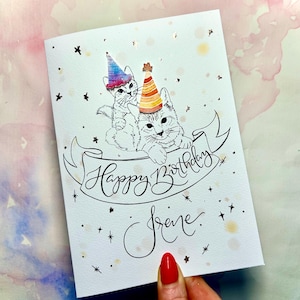 Happy Birthday
Irene